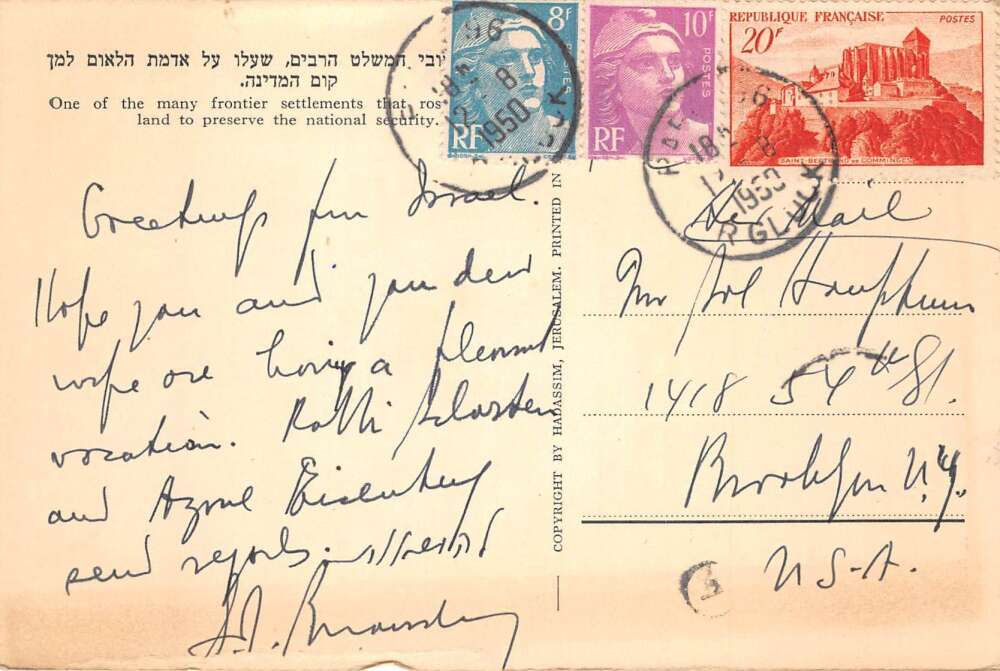 יובי המשלט הרבים, שעלו על אדמת הלאום למן
קום המדינה.
One of the many frontier settlements that ros
land to preserve the national security.
8F
POSTES
RF
10F
POSTES
RF
REPUBLIQUE FRANÇAISE POSTES
20F
SAINT-BERTRAND DE COMMINGES
96
18
12 8
1950
96
18
12 8
1950
R GLUCK
COPYRIGHT BY HADASSIM, JERUSALEM. PRINTED IN
Greetings from Israel.
Hope you and your dear
wife are having a pleasant
vacation. Rabbi
and Azriel Eisenberg
send regards.
Air Mail
Mr Joel
1418 54th St.
Brooklyn N.Y.
U.S.A.